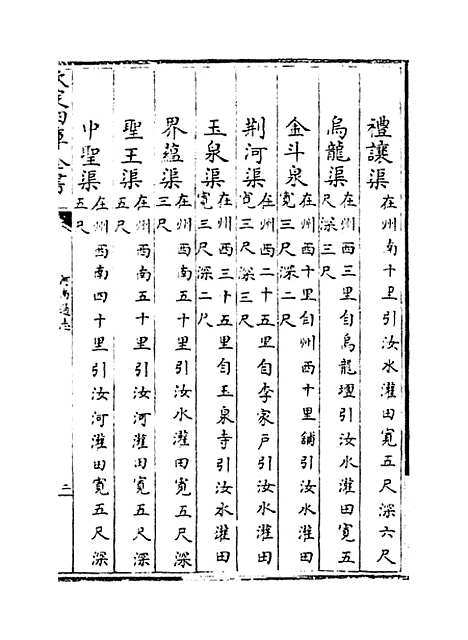 禮讓渠在州南十里引汝水灌田寬五尺深六尺
烏龍渠在州西三里自烏龍壇引汝水灌田寬五
尺深三尺
金斗泉在州西十里自州西十里鋪引汝水灌田
寬三尺深二尺
荆河渠在州西二十五里自李家戶引汝水灌田
寬三尺深三尺
玉泉渠在州西三十五里自玉泉寺引汝水灌田
寬三尺深二尺
界藴渠在州西南五十里引汝水灌田寬五尺深
三尺
聖王渠在州西南五十里引汝河灌田寬五尺深
五尺
中聖渠在州西南四十里引汝河灌田寬五尺深
五尺
欽定四庫全書
河南通志
二